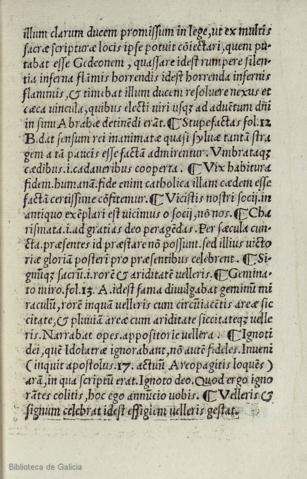 illum clarum ducem promissum in lege, ut ex multis
sacræ scripturæ locis ipse potuit cōiectari, quem pu-
tabat esse Gedeonem, quassare idest rumpere silen-
tia inferna flāmis horrendis idest horrenda infernis
flammis, & timebat illum ducem resoluere nexus et
cæca vincula, quibus electi viri usq; ad aduentum dñi
in sinu Abrahæ detinēdi erāt. ¶ Stupefactas fol. 12
B. dat sensum rei inanimatæ quasi syluæ tantā stra
gem a tā paucis esse factā admirentur. Vmbrataq;
cædibus .i. cadaueribus cooperta. ¶ Vix habitura
fidem. humanā. fide enim catholica illam cædem esse
factā certissime cōfitemur. ¶ Vicistis nostri socij. in
antiquo exēplari est uicimus o socij, nō nos. ¶ Cha
rismata .i. ad gratias deo peragēdas. Per sæcula cun-
cta. præsentes id præstare nō possunt. sed illius victo
riæ gloriā posteri pro præsentibus celebrent. ¶ Si-
gnūq; sacrū .i. rorē & ariditatē velleris. ¶ Gemina-
to miro. fol. 13. A. idest fama diuulgabat geminū mi
raculū, rorē inquā velleris cum circūiacētis areæ sic
citate, & pluuiā areæ cum ariditate siccitateq; uelle
ris. Narrabat opes. appositorie vellera. ¶ Ignoti
dei, quē Idolatræ ignorabant, nō autē fideles. Inueni
(inquit apostolus. 17. actuū Areopagitis loquēs)
arā, in qua scriptū erat. Ignoto deo. Quod ergo igno
rantes colitis, hoc ego annūcio uobis. ¶ Velleris &
signum celebrat idest effigiam uelleris gestat.
Biblioteca de Galicia